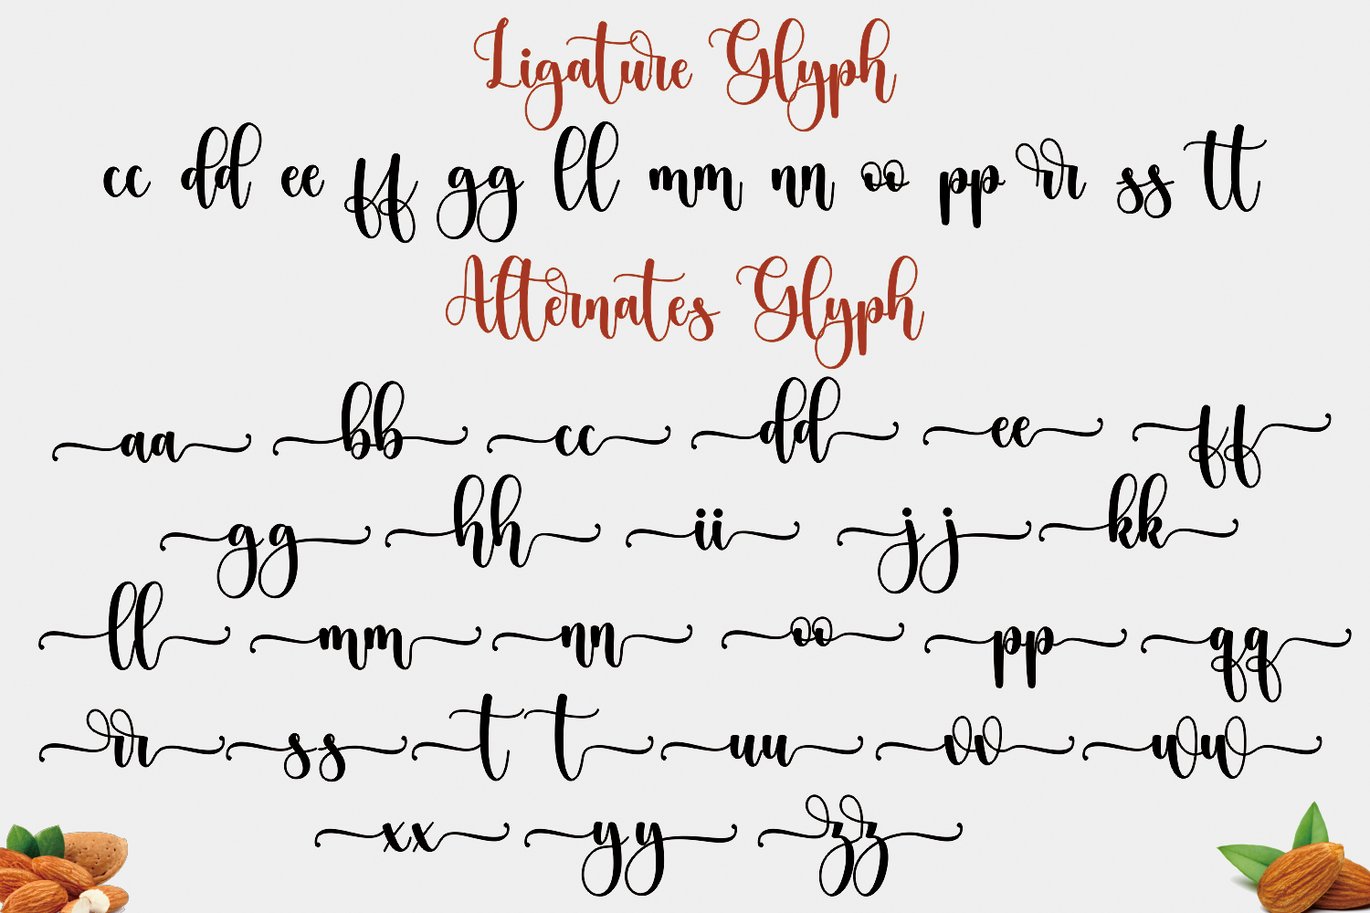 Ligature Glyph
cc dd ee ff gg ll mm nn oo pp rr ss tt
Alternates Glyph
aa bb cc dd ee ff
gg hh ii jj kk
ll mm nn oo pp qq
rr ss tt uu vv ww
xx yy zz